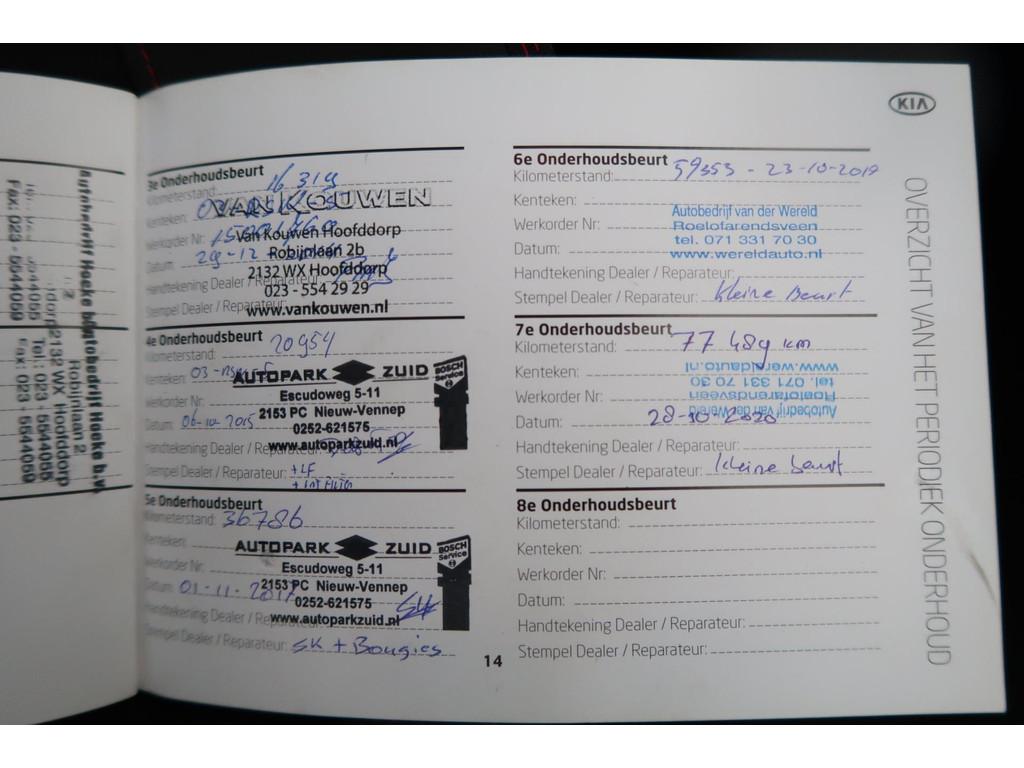 KIA
OVERZICHT VAN HET PERIODIEK ONDERHOUD
Autobedrijf Hoeke b.v.
Robijnlaan 2
2132 WX Hoofddorp
Tel: 023 - 5544055
Fax: 023 - 5544059
3e Onderhoudsbeurt
Kilometerstand: 16 319
Kenteken:
VAN KOUWEN
Werkorder Nr:
Van Kouwen Hoofddorp
Datum: 29-12
Robijnlaan 2b
2132 WX Hoofddorp
Handtekening Dealer / Reparateur:
023 - 554 29 29
Stempel Dealer / Reparateur:
www.vankouwen.nl
4e Onderhoudsbeurt
Kilometerstand: 20954
Kenteken: 03-
AUTOPARK ZUID
BOSCH Service
Werkorder Nr:
Escudoweg 5-11
2153 PC Nieuw-Vennep
Datum: 06-10-2015
0252-621575
Handtekening Dealer / Reparateur:
www.autoparkzuid.nl
Stempel Dealer / Reparateur: + LF
5e Onderhoudsbeurt
Kilometerstand: 36786
Kenteken:
AUTOPARK ZUID
BOSCH Service
Werkorder Nr:
Escudoweg 5-11
Datum: 01-11-2017
2153 PC Nieuw-Vennep
0252-621575
Handtekening Dealer / Reparateur:
www.autoparkzuid.nl
Stempel Dealer / Reparateur: SK + Bougies
14
6e Onderhoudsbeurt
Kilometerstand: 59353 - 23-10-2019
Kenteken:
Autobedrijf van der Wereld
Werkorder Nr:
Roelofarendsveen
tel. 071 331 70 30
Datum:
www.wereldauto.nl
Handtekening Dealer / Reparateur:
Stempel Dealer / Reparateur: Kleine Beurt
7e Onderhoudsbeurt
Kilometerstand: 77 489 km
Kenteken:
www.wereldauto.nl
tel. 071 331 70 30
Werkorder Nr:
Roelofarendsveen
Autobedrijf van der Wereld
Datum: 28-10-2020
Handtekening Dealer / Reparateur:
Stempel Dealer / Reparateur: Kleine beurt
8e Onderhoudsbeurt
Kilometerstand:
Kenteken:
Werkorder Nr:
Datum:
Handtekening Dealer / Reparateur:
Stempel Dealer / Reparateur: